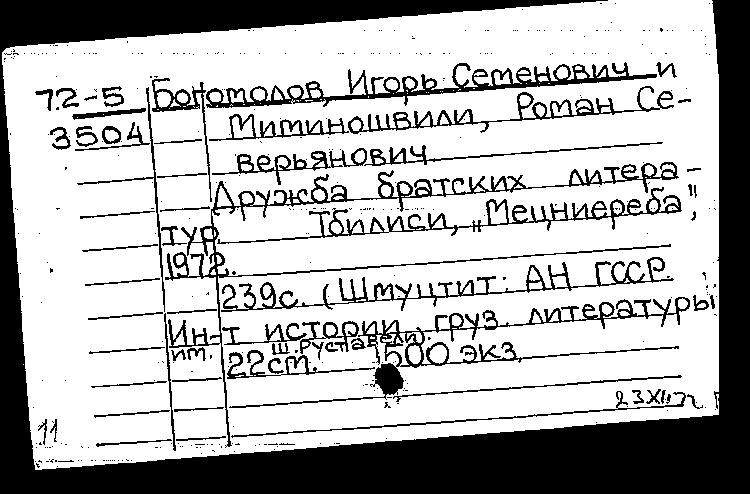 72-5 Богомолов, Игорь Семенович и
3504 Миминошвили, Роман Се-
верьянович
Дружба братских литера-
тур. Тбилиси, „Мецниереба",
1972.
239с. (Шмуцтит: АН ГССР.
Ин-т истории груз. литературы
им. Ш. Руставели).
22см. 1500 экз.
11 23 XII 72